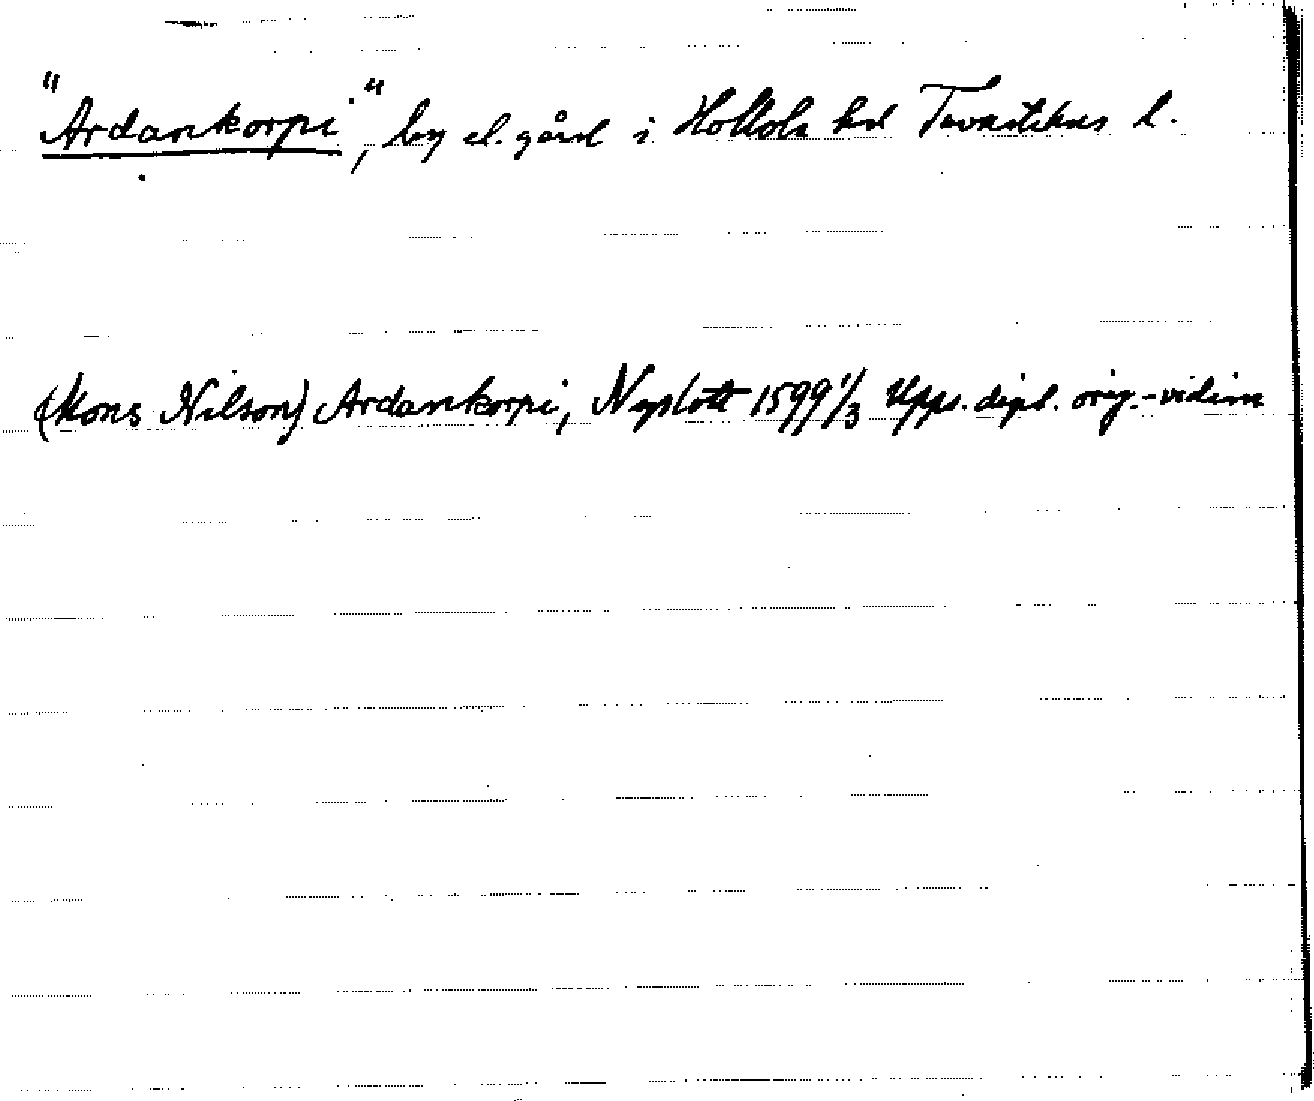 "Ardankorpi", by el. gård i Hollola hd Tavastehus l.
(Mons Nilson) Ardankorpi, Nyslott 1599 1/3 Upps. dipl. orig.-vidim